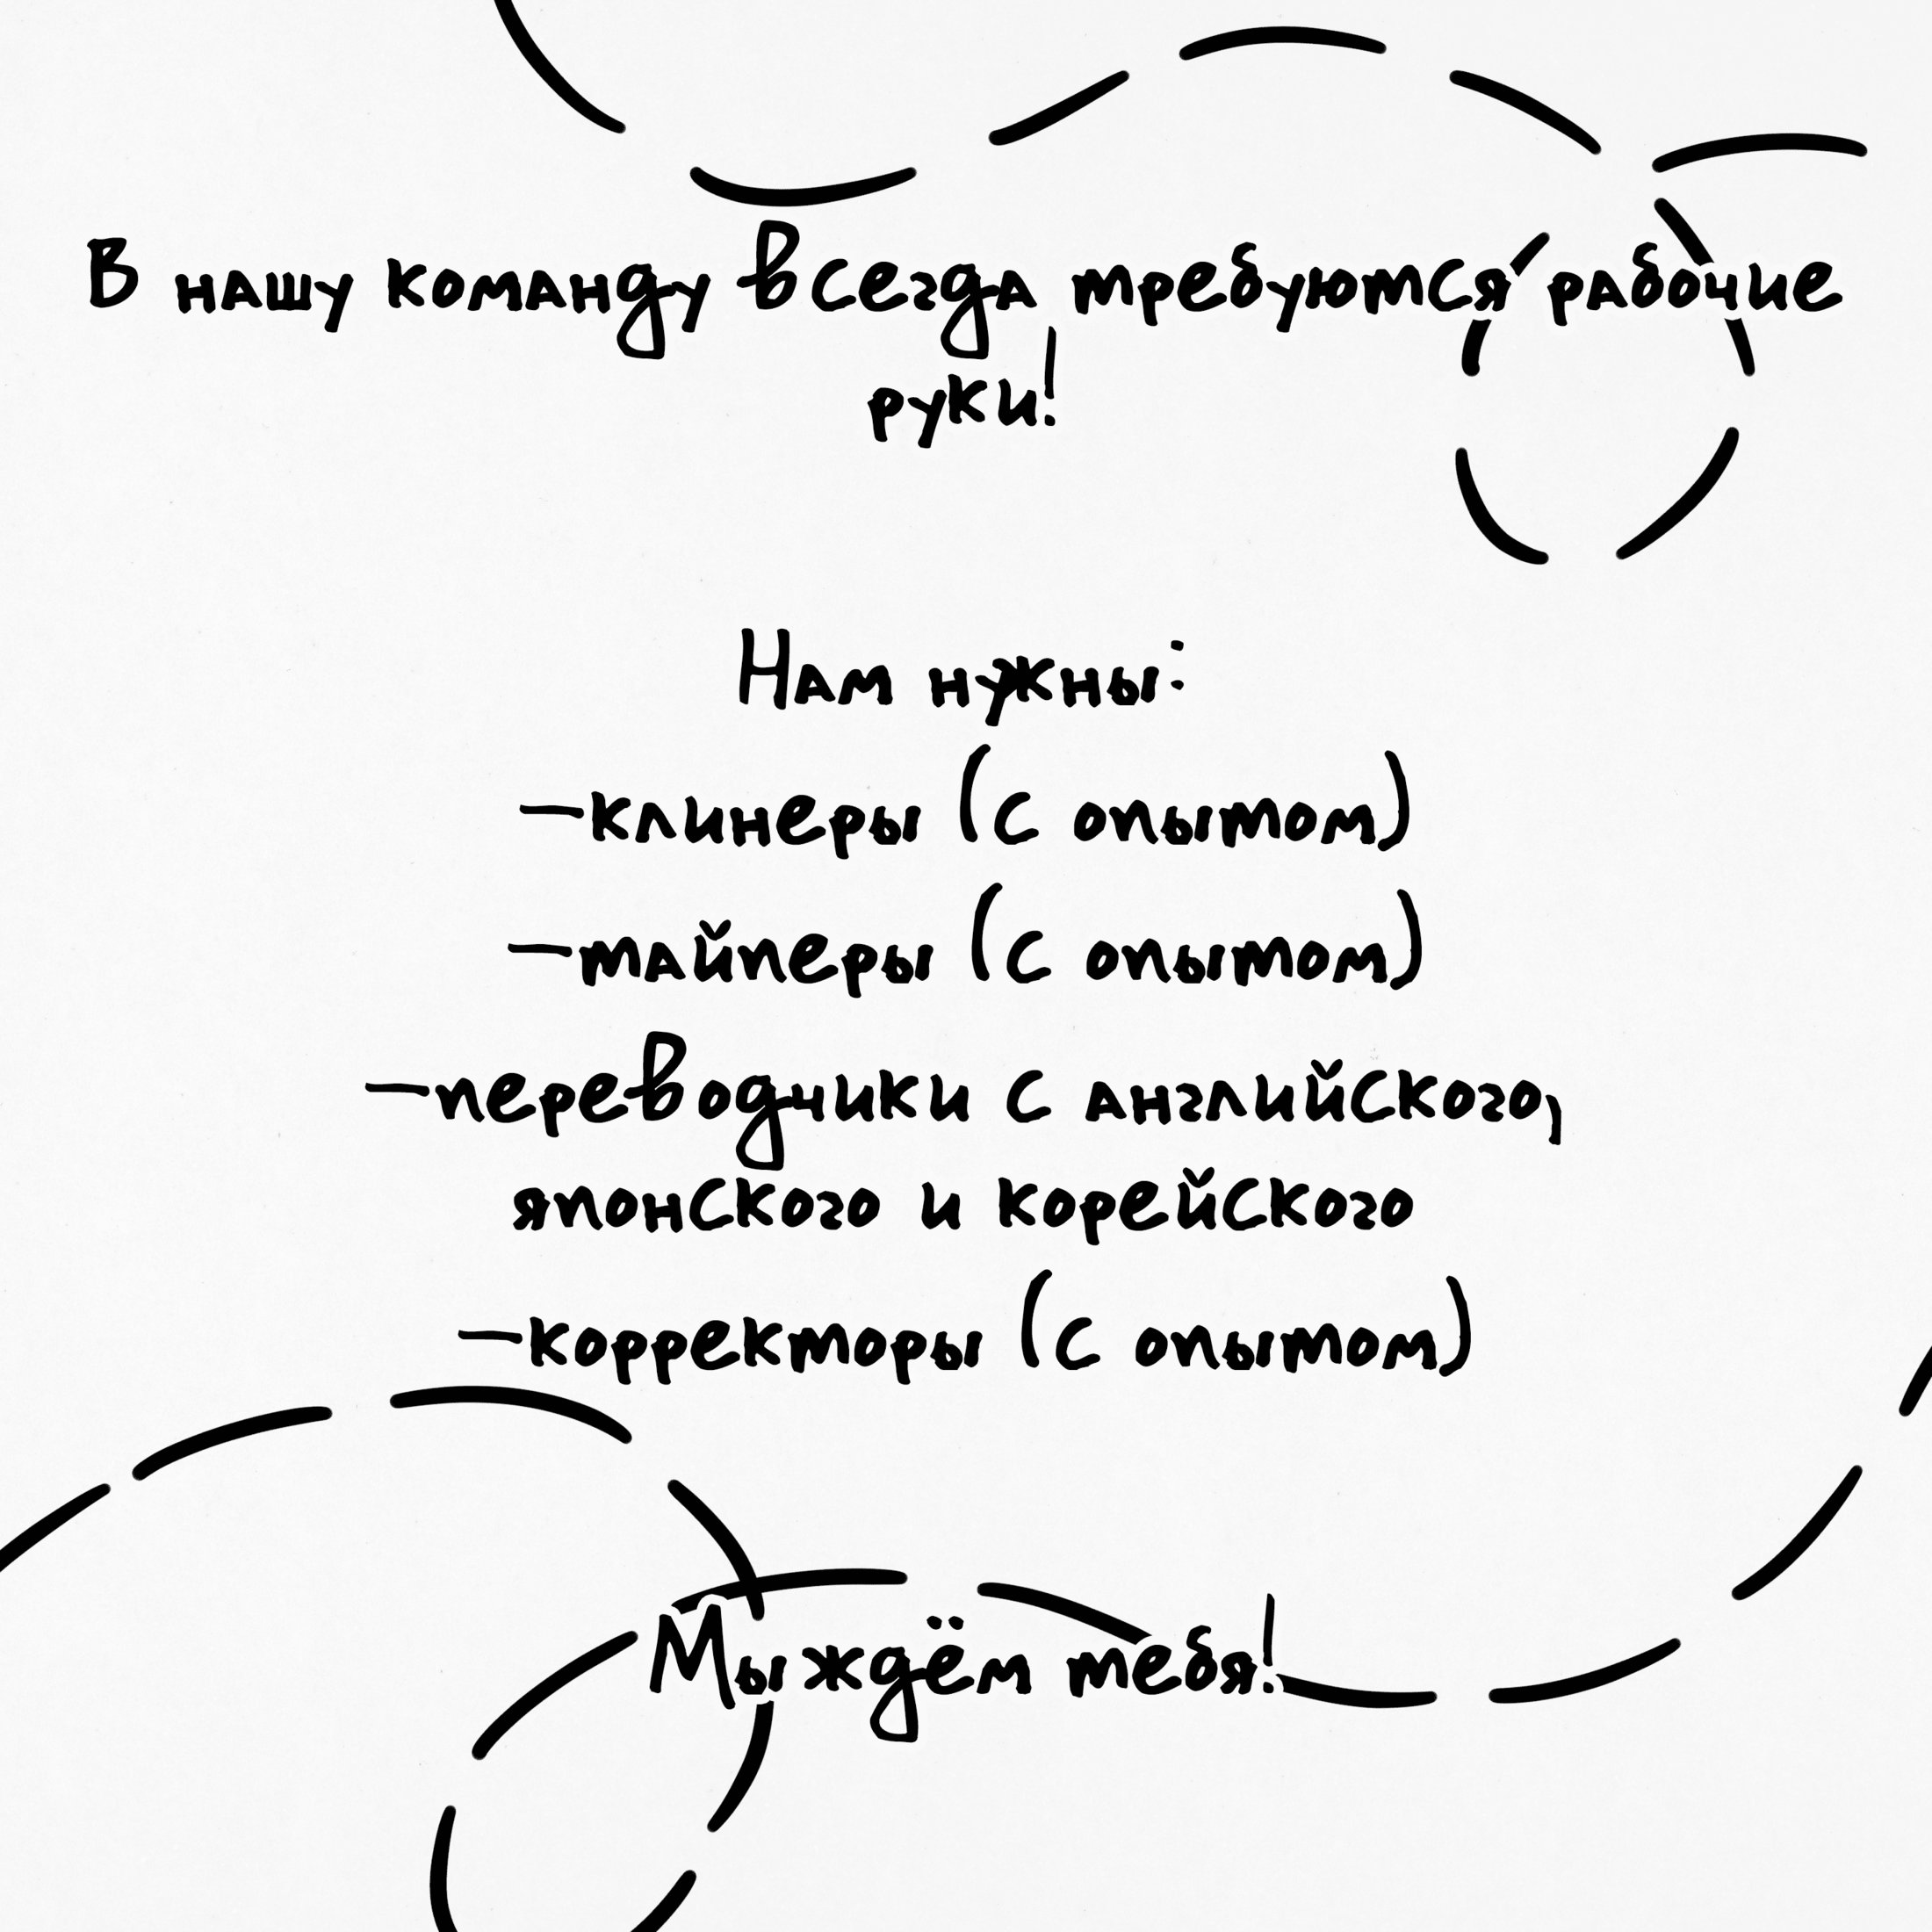 В нашу команду всегда требуются рабочие
руки!
Нам нужны:
—клинеры (с опытом)
—тайперы (с опытом)
—переводчики с английского,
японского и корейского
—корректоры (с опытом)
Мы ждём тебя!